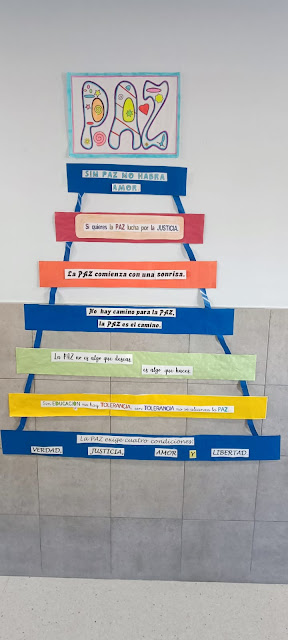 PAZ
SIN PAZ NO HABRA
AMOR
Si quieres la PAZ lucha por la JUSTICIA.
La PAZ comienza con una sonrisa.
No hay camino para la PAZ,
la PAZ es el camino.
La PAZ no es algo que deseas
es algo que haces
Sin EDUCACIÓN no hay TOLERANCIA, sin TOLERANCIA no se alcanza la PAZ.
La PAZ exige cuatro condiciones:
VERDAD, JUSTICIA, AMOR Y LIBERTAD